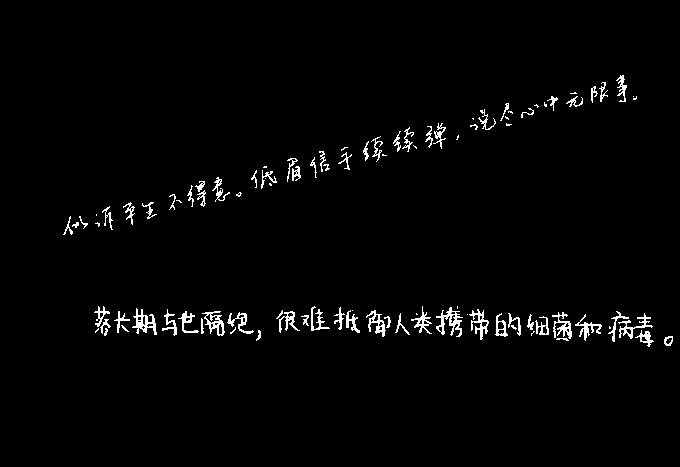 似诉平生不得意。低眉信手续续弹，说尽心中无限事。
落长期与世隔绝，很难抵御人类携带的细菌和病毒。